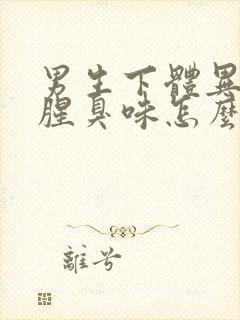 男生下體異
腥臭味怎麼
離兮